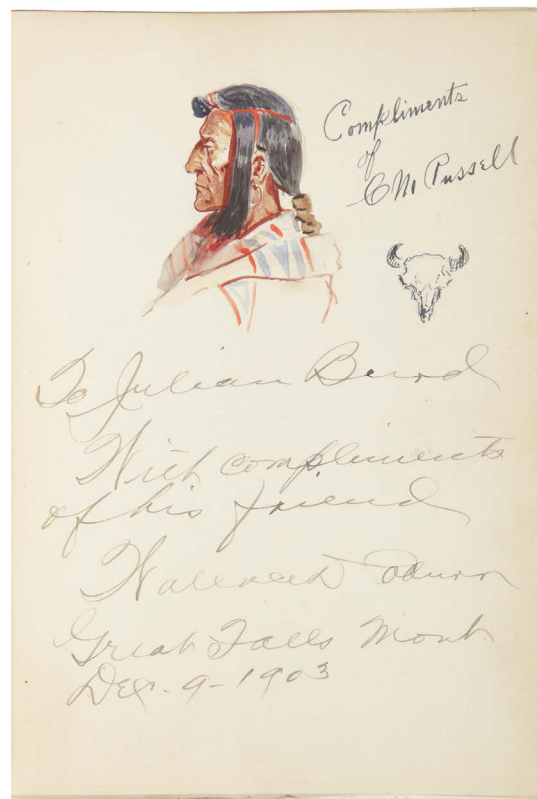 Compliments
of
CM Russell
To Julian
With compliments
of his friend
Wallace D Coburn
Great Falls Mont
Dec - 9 - 1903